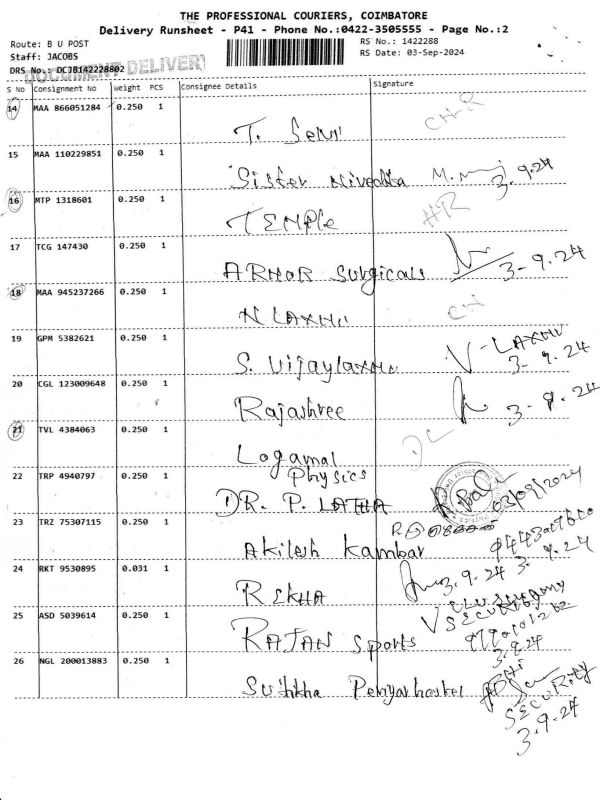 THE PROFESSIONAL COURIERS, COIMBATORE
Delivery Runsheet - P41 - Phone No.:0422-3505555 - Page No.:2
Route: B U POST
RS No.: 1422288
Staff: JACOBS
RS Date: 03-Sep-2024
DRS No.: DCJB142228802
DOCUMENT DELIVERY
S No Consignment No Weight PCS Consignee Details Signature
14 MAA 866051284 0.250 1
T. Selvi
15 MAA 110229851 0.250 1
Sister Nivedita 3.9.24
16 MTP 1318601 0.250 1
TEMPLE HR
17 TCG 147430 0.250 1
ARMOR Surgicals 3-9.24
18 MAA 945237266 0.250 1
N LAXMI
19 GPM 5382621 0.250 1
S. Vijaylaxmi V-LAXMI
3.9.24
20 CGL 123009648 0.250 1
Rajashree 3-9.24
21 TVL 4384063 0.250 1
Logamal DL
22 TRP 4940797 0.250 1
Physics
DR. P. LATHA 03/09/2024
23 TRZ 75307115 0.250 1
Akilesh Kambar 3. 9.24
24 RKT 9530895 0.031 1
REKHA 3.9.24
25 ASD 5039614 0.250 1
SECURITY
RAJAN Sports 3.9.24
26 NGL 200013883 0.250 1
Periyar hostel
SECURITY
3.9.24